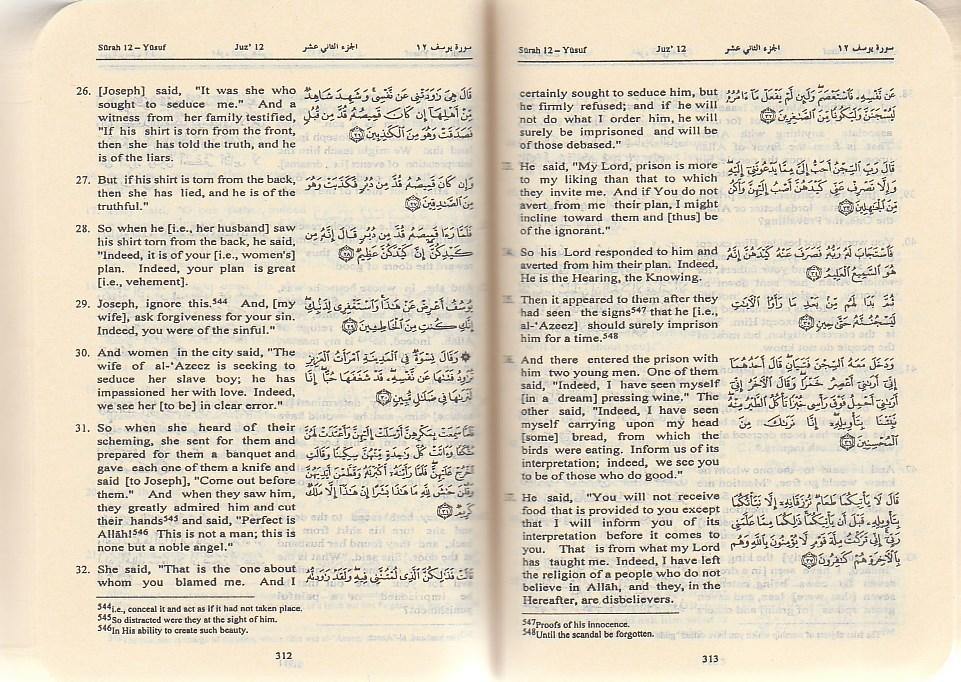 Sūrah 12 – Yūsuf Juz' 12 الجزء الثاني عشر سورة يوسف ١٢
26. [Joseph] said, "It was she who
sought to seduce me." And a
witness from her family testified,
"If his shirt is torn from the front,
then she has told the truth, and he
is of the liars.
قَالَ هِىَ رَٰوَدَتْنِى عَن نَّفْسِى وَشَهِدَ شَاهِدٌ
مِّنْ أَهْلِهَآ إِن كَانَ قَمِيصُهُۥ قُدَّ مِن قُبُلٍ
فَصَدَقَتْ وَهُوَ مِنَ ٱلْكَٰذِبِينَ ٢٦
27. But if his shirt is torn from the back,
then she has lied, and he is of the
truthful."
وَإِن كَانَ قَمِيصُهُۥ قُدَّ مِن دُبُرٍ فَكَذَبَتْ وَهُوَ
مِنَ ٱلصَّٰدِقِينَ ٢٧
28. So when he [i.e., her husband] saw
his shirt torn from the back, he said,
"Indeed, it is of your [i.e., women's]
plan. Indeed, your plan is great
[i.e., vehement].
فَلَمَّا رَءَا قَمِيصَهُۥ قُدَّ مِن دُبُرٍ قَالَ إِنَّهُۥ مِن
كَيْدِكُنَّ إِنَّ كَيْدَكُنَّ عَظِيمٌ ٢٨
29. Joseph, ignore this.544 And, [my
wife], ask forgiveness for your sin.
Indeed, you were of the sinful."
يُوسُفُ أَعْرِضْ عَنْ هَٰذَا وَٱسْتَغْفِرِى لِذَنۢبِكِ
إِنَّكِ كُنتِ مِنَ ٱلْخَاطِـِٔينَ ٢٩
30. And women in the city said, "The
wife of al-'Azeez is seeking to
seduce her slave boy; he has
impassioned her with love. Indeed,
we see her [to be] in clear error."
وَقَالَ نِسْوَةٌ فِى ٱلْمَدِينَةِ ٱمْرَأَتُ ٱلْعَزِيزِ
تُرَٰوِدُ فَتَىٰهَا عَن نَّفْسِهِۦ قَدْ شَغَفَهَا حُبًّا إِنَّا
لَنَرَىٰهَا فِى ضَلَٰلٍ مُّبِينٍ ٣٠
31. So when she heard of their
scheming, she sent for them and
prepared for them a banquet and
gave each one of them a knife and
said [to Joseph], "Come out before
them." And when they saw him,
they greatly admired him and cut
their hands545 and said, "Perfect is
Allāh!546 This is not a man; this is
none but a noble angel."
فَلَمَّا سَمِعَتْ بِمَكْرِهِنَّ أَرْسَلَتْ إِلَيْهِنَّ وَأَعْتَدَتْ لَهُنَّ
مُتَّكَـًٔا وَءَاتَتْ كُلَّ وَٰحِدَةٍ مِّنْهُنَّ سِكِّينًا وَقَالَتِ
ٱخْرُجْ عَلَيْهِنَّ فَلَمَّا رَأَيْنَهُۥٓ أَكْبَرْنَهُۥ وَقَطَّعْنَ أَيْدِيَهُنَّ
وَقُلْنَ حَٰشَ لِلَّهِ مَا هَٰذَا بَشَرًا إِنْ هَٰذَآ إِلَّا مَلَكٌ
كَرِيمٌ ٣١
32. She said, "That is the one about
whom you blamed me. And I
قَالَتْ فَذَٰلِكُنَّ ٱلَّذِى لُمْتُنَّنِى فِيهِ وَلَقَدْ رَٰوَدتُّهُۥ
544i.e., conceal it and act as if it had not taken place.
545So distracted were they at the sight of him.
546In His ability to create such beauty.
312
Sūrah 12 – Yūsuf Juz' 12 الجزء الثاني عشر سورة يوسف ١٢
certainly sought to seduce him, but
he firmly refused; and if he will
not do what I order him, he will
surely be imprisoned and will be
of those debased."
عَن نَّفْسِهِۦ فَٱسْتَعْصَمَ وَلَئِن لَّمْ يَفْعَلْ مَآ ءَامُرُهُۥ
لَيُسْجَنَنَّ وَلَيَكُونًا مِّنَ ٱلصَّٰغِرِينَ ٣٢
He said, "My Lord, prison is more
to my liking than that to which
they invite me. And if You do not
avert from me their plan, I might
incline toward them and [thus] be
of the ignorant."
قَالَ رَبِّ ٱلسِّجْنُ أَحَبُّ إِلَىَّ مِمَّا يَدْعُونَنِىٓ إِلَيْهِ
وَإِلَّا تَصْرِفْ عَنِّى كَيْدَهُنَّ أَصْبُ إِلَيْهِنَّ وَأَكُن
مِّنَ ٱلْجَٰهِلِينَ ٣٣
So his Lord responded to him and
averted from him their plan. Indeed,
He is the Hearing, the Knowing.
فَٱسْتَجَابَ لَهُۥ رَبُّهُۥ فَصَرَفَ عَنْهُ كَيْدَهُنَّ إِنَّهُۥ
هُوَ ٱلسَّمِيعُ ٱلْعَلِيمُ ٣٤
Then it appeared to them after they
had seen the signs547 that he [i.e.,
al-'Azeez] should surely imprison
him for a time.548
ثُمَّ بَدَا لَهُم مِّنۢ بَعْدِ مَا رَأَوُا۟ ٱلْءَايَٰتِ
لَيَسْجُنُنَّهُۥ حَتَّىٰ حِينٍ ٣٥
And there entered the prison with
him two young men. One of them
said, "Indeed, I have seen myself
[in a dream] pressing wine." The
other said, "Indeed, I have seen
myself carrying upon my head
[some] bread, from which the
birds were eating. Inform us of its
interpretation; indeed, we see you
to be of those who do good."
وَدَخَلَ مَعَهُ ٱلسِّجْنَ فَتَيَانِ قَالَ أَحَدُهُمَآ
إِنِّىٓ أَرَىٰنِىٓ أَعْصِرُ خَمْرًا وَقَالَ ٱلْءَاخَرُ إِنِّىٓ
أَرَىٰنِىٓ أَحْمِلُ فَوْقَ رَأْسِى خُبْزًا تَأْكُلُ ٱلطَّيْرُ مِنْهُ
نَبِّئْنَا بِتَأْوِيلِهِۦٓ إِنَّا نَرَىٰكَ مِنَ
ٱلْمُحْسِنِينَ ٣٦
He said, "You will not receive
food that is provided to you except
that I will inform you of its
interpretation before it comes to
you. That is from what my Lord
has taught me. Indeed, I have left
the religion of a people who do not
believe in Allāh, and they, in the
Hereafter, are disbelievers.
قَالَ لَا يَأْتِيكُمَا طَعَامٌ تُرْزَقَانِهِۦٓ إِلَّا نَبَّأْتُكُمَا
بِتَأْوِيلِهِۦ قَبْلَ أَن يَأْتِيَكُمَا ذَٰلِكُمَا مِمَّا عَلَّمَنِى
رَبِّىٓ إِنِّى تَرَكْتُ مِلَّةَ قَوْمٍ لَّا يُؤْمِنُونَ بِٱللَّهِ وَهُم
بِٱلْءَاخِرَةِ هُمْ كَٰفِرُونَ ٣٧
547Proofs of his innocence.
548Until the scandal be forgotten.
313